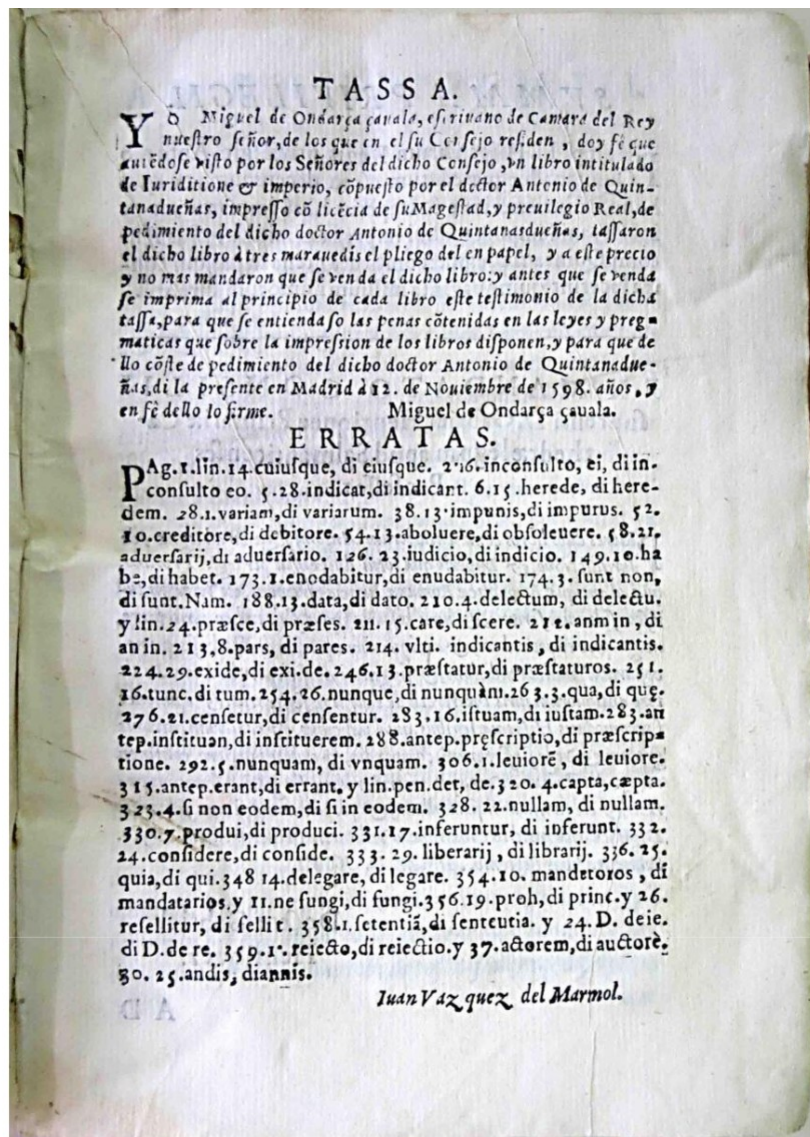 TASSA.
YO Miguel de Ondarça çavala, escriuano de Camara del Rey
nuestro señor, de los que en el su Consejo residen, doy fè que
auiẽdose visto por los Señores del dicho Consejo, vn libro intitulado
de Iuriditione & imperio, cõpuesto por el doctor Antonio de Quin-
tanadueñas, impresso cõ licẽcia de su Magestad, y preuilegio Real, de
pedimiento del dicho doctor Antonio de Quintanasdueñas, tassaron
el dicho libro à tres marauedis el pliego del en papel, y a este precio
y no mas mandaron que se venda el dicho libro: y antes que se venda
se imprima al principio de cada libro este testimonio de la dicha
tassa, para que se entienda so las penas cõtenidas en las leyes y preg-
maticas que sobre la impression de los libros disponen, y para que de
llo cõste de pedimiento del dicho doctor Antonio de Quintanadue-
ñas, di la presente en Madrid à 12. de Nouiembre de 1598. años, y
en fè dello lo firme. Miguel de Ondarça çauala.
ERRATAS.
PAg. 1. lin. 14. cuiusque, di eiusque. 2 16. inconsulto, ei, di in-
consulto eo. 5. 28. indicat, di indicant. 6. 15. herede, di here-
dem. 28. 1. variam, di variarum. 38. 13. impunis, di impurus. 52.
10. creditore, di debitore. 54. 13. aboluere, di obsoleuere. 58. 21.
aduersarij, di aduersario. 126. 23. iudicio, di indicio. 149. 10. ha
be, di habet. 173. 1. enodabitur, di enudabitur. 174. 3. sunt non,
di sunt. Nam. 188. 13. data, di dato. 210. 4. delectum, di delectu.
y lin. 24. præsce, di præses. 211. 15. care, di scere. 212. anm in, di
an in. 213. 8. pars, di pares. 214. vlti. indicantis, di indicantis.
224. 29. exide, di exi. de. 246. 13. præstatur, di præstaturos. 251.
16. tunc. di tum. 254. 26. nunque, di nunquàm. 263. 3. qua, di quę.
276. 21. censetur, di censentur. 283. 16. istuam, di iustam. 283. an
tep. instituan, di instituerem. 288. antep. pręscriptio, di præscrip-
tione. 292. 5. nunquam, di vnquam. 306. 1. leuiorẽ, di leuiore.
315. antep. erant, di errant. y lin. pen. det, de. 320. 4. capta, cæpta.
323. 4. si non eodem, di si in eodem. 328. 22. nullam, di nullam.
330. 7. produi, di produci. 331. 17. inferuntur, di inferunt. 332.
24. considere, di conside. 333. 29. liberarij, di librarij. 336. 25.
quia, di qui. 348 14. delegare, di legare. 354. 10. mandetoros, di
mandatarios. y 11. ne fungi, di fungi. 356. 19. proh, di princ. y 26.
refellitur, di sellit. 358. 1. setentiã, di senteutia. y 24. D. deie.
di D. de re. 359. 1. reiecto, di reiectio. y 37. actorem, di auctorè.
30. 25. andis, diannis.
Iuan Vazquez del Marmol.